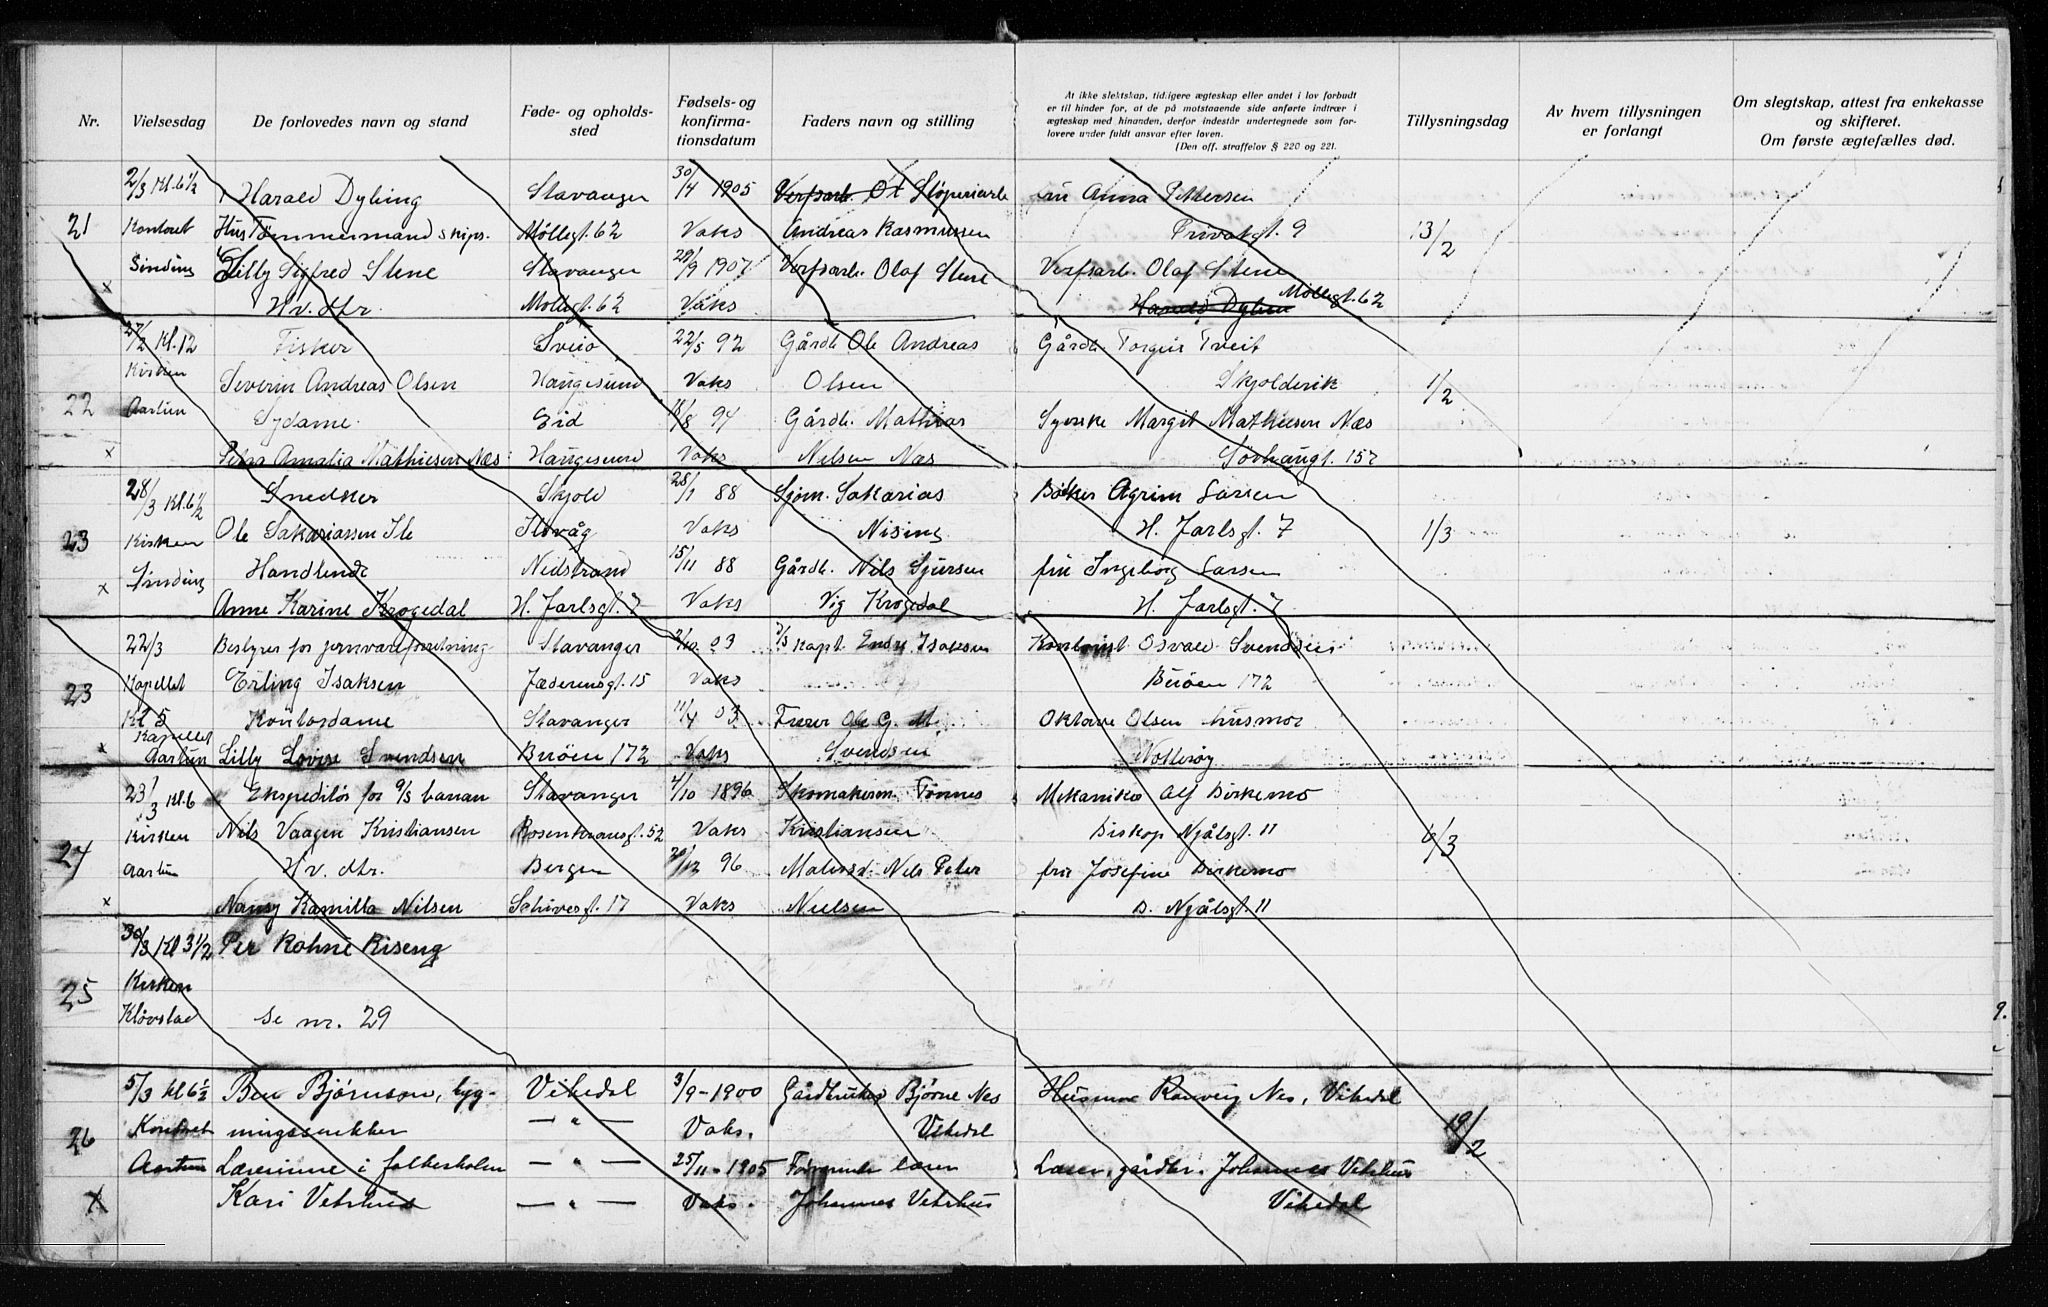 Nr. Vielsesdag De forlovedes navn og stand Føde- og opholds-sted Fødsels- og konfirma-tionsdatum Faders navn og stilling At ikke slektskap, tidligere ægteskap eller andet i lov forbudt er til hinder for, at de på motstaaende side anførte indtrær i ægteskap med hinanden, derfor indestår undertegnede som for-lovere under fuldt ansvar efter loven. (Den off. straffelov § 220 og 221. Tillysningsdag Av hvem tillysningen er forlangt Om slegtskap, attest fra enkekasse og skifteret. Om første ægtefælles død.
2/3 Kl. 6 1/2 Harald Dybing Stavanger 30/4 1905 Verfsarb. Ol Støperiarb Anna Pettersen
21 Kontoret Hus Tømmermand skips. Møllegt. 62 Vaks Andreas Rasmussen Privatgt. 9 13/2
Sinding Lilly Sigfred Stene Stavanger 29/9 1907 Verfsarb. Olaf Stene Verfsarb. Olaf Stene
x Hv. dtr. Møllegt. 62 Vaks Harald Dybing Møllegt. 62
27/2 Kl. 12 Fisker Sveio 22/5 92 Gårdb. Ole Andreas Gårdb. Torgeir Tveit
Kirken Severin Andreas Olsen Haugesund Vaks Olsen Skjoldevik 1/2
22 Aartun Sydame. Eid 18/8 94 Gårdb. Mathias Syerske Margit Mathiesen Næs
x Amalia Mathiesen Næs Haugesund Vaks Nilsen Næs Sørhaugt. 157
28/3 Kl. 6 1/2 Snedker Skjold 28/1 88 Sjøm. Sakarias Bøker Agrim Larsen
23 Kirken Ole Sakariassen Ile Ilsvåg Vaks Nising H. Jarlsgt. 7 1/3
Sinding Handlende Nedstrand 15/11 88 Gårdb. Nils Sjursen fru Ingeborg Larsen
x Anne Karine Krogedal H. Jarlsgt. 7 Vaks Vig Krogedal H. Jarlsgt. 7
22/3 Bestyrer for jernvareforretning Stavanger 2/10 03 Kapt. Endre Isaksen Kontorist Osvald Svendsen
23 Kapellet Erling Isaksen Jæderensgt. 15 Vaks Buøen 172
Kl 5 Kontordame Stavanger 11/4 03 Ole G. M. Oktave Olsen husmor
x Kapellet Aartun Lilly Lovise Svendsen Buøen 172 Vaks Svendsen
23/3 Kl. 6 Ekspeditør for Stavanger 4/10 1896 Skomakerm. Tønnes Mekaniker Alf Birkemo
Kirken Nils Vaagen Kristiansen Rosenkransgt. 52 Vaks Kristiansen Biskop Njålsgt. 11 6/3
24 Aartun Hv. dtr. Bergen 20/12 96 Nils Peter fru Josefine Birkemo
x Nancy Kamilla Nilsen Vaks Nielsen B. Njålsgt. 11
30/3 Kl 3 1/2 Per Rohne Riseng
25 Kirken
Kløvstad se nr. 29
5/3 Kl 6 1/2 Ben Bjørnson, byg- Vikedal 3/9-1900 Gårdbruker Bjørne Nes Husmor Ranveig Nes, Vikedal
26 Kontoret ningssnikker — " — Vaks. Vikedal 19/2
Aartun Lærerinne i folkeskolen — " — 25/11-1905 Forhenv. lærer Lærer, gårdbr. Johannes Vetrhus
x Kari Vetrhus — " — Vaks. Johannes Vetrhus Vikedal
9.